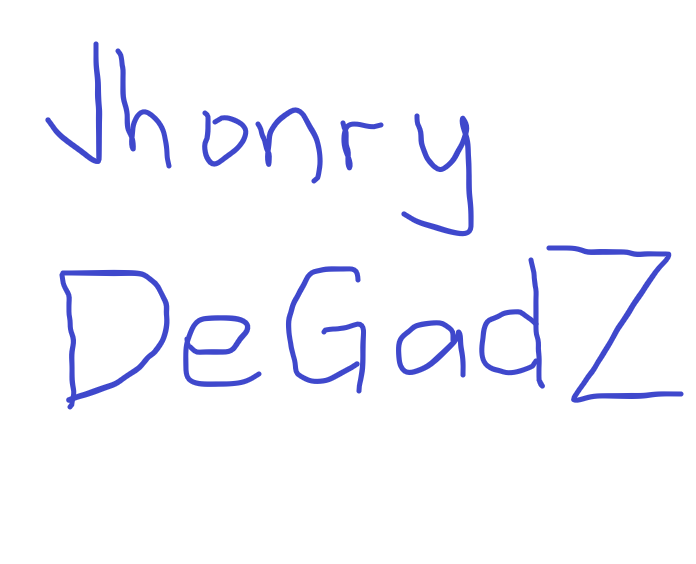 Jhonry
DeGadZ